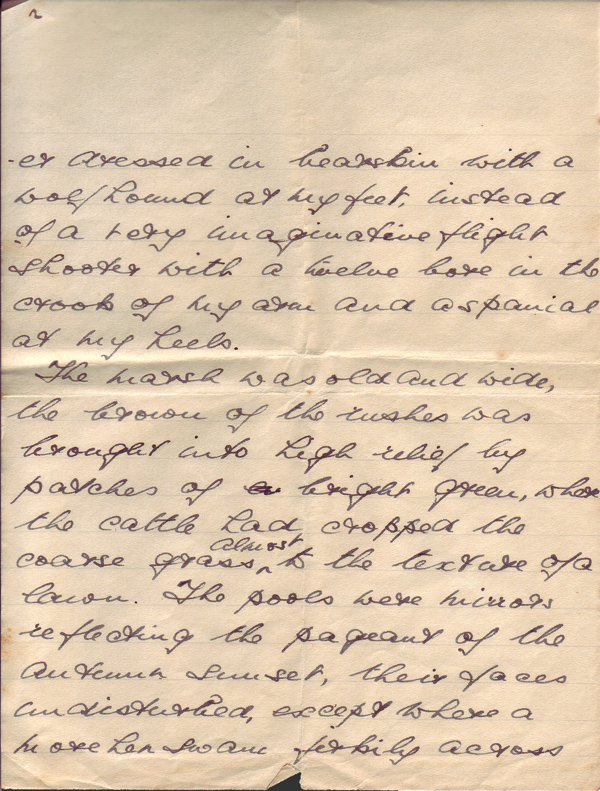 2
-er dressed in bearskin with a
wolf hound at my feet, instead
of a very imaginative flight
shooter with a twelve bore in the
crook of my arm and a spaniel
at my heels.
The marsh was old and wide,
the brown of the rushes was
brought into high relief by
patches of bright green, where
the cattle had cropped the
coarse grass almost to the texture of a
lawn. The pools were mirrors
reflecting the pageant of the
autumn sunset, their faces
undisturbed, except where a
morehen swam jerkily across